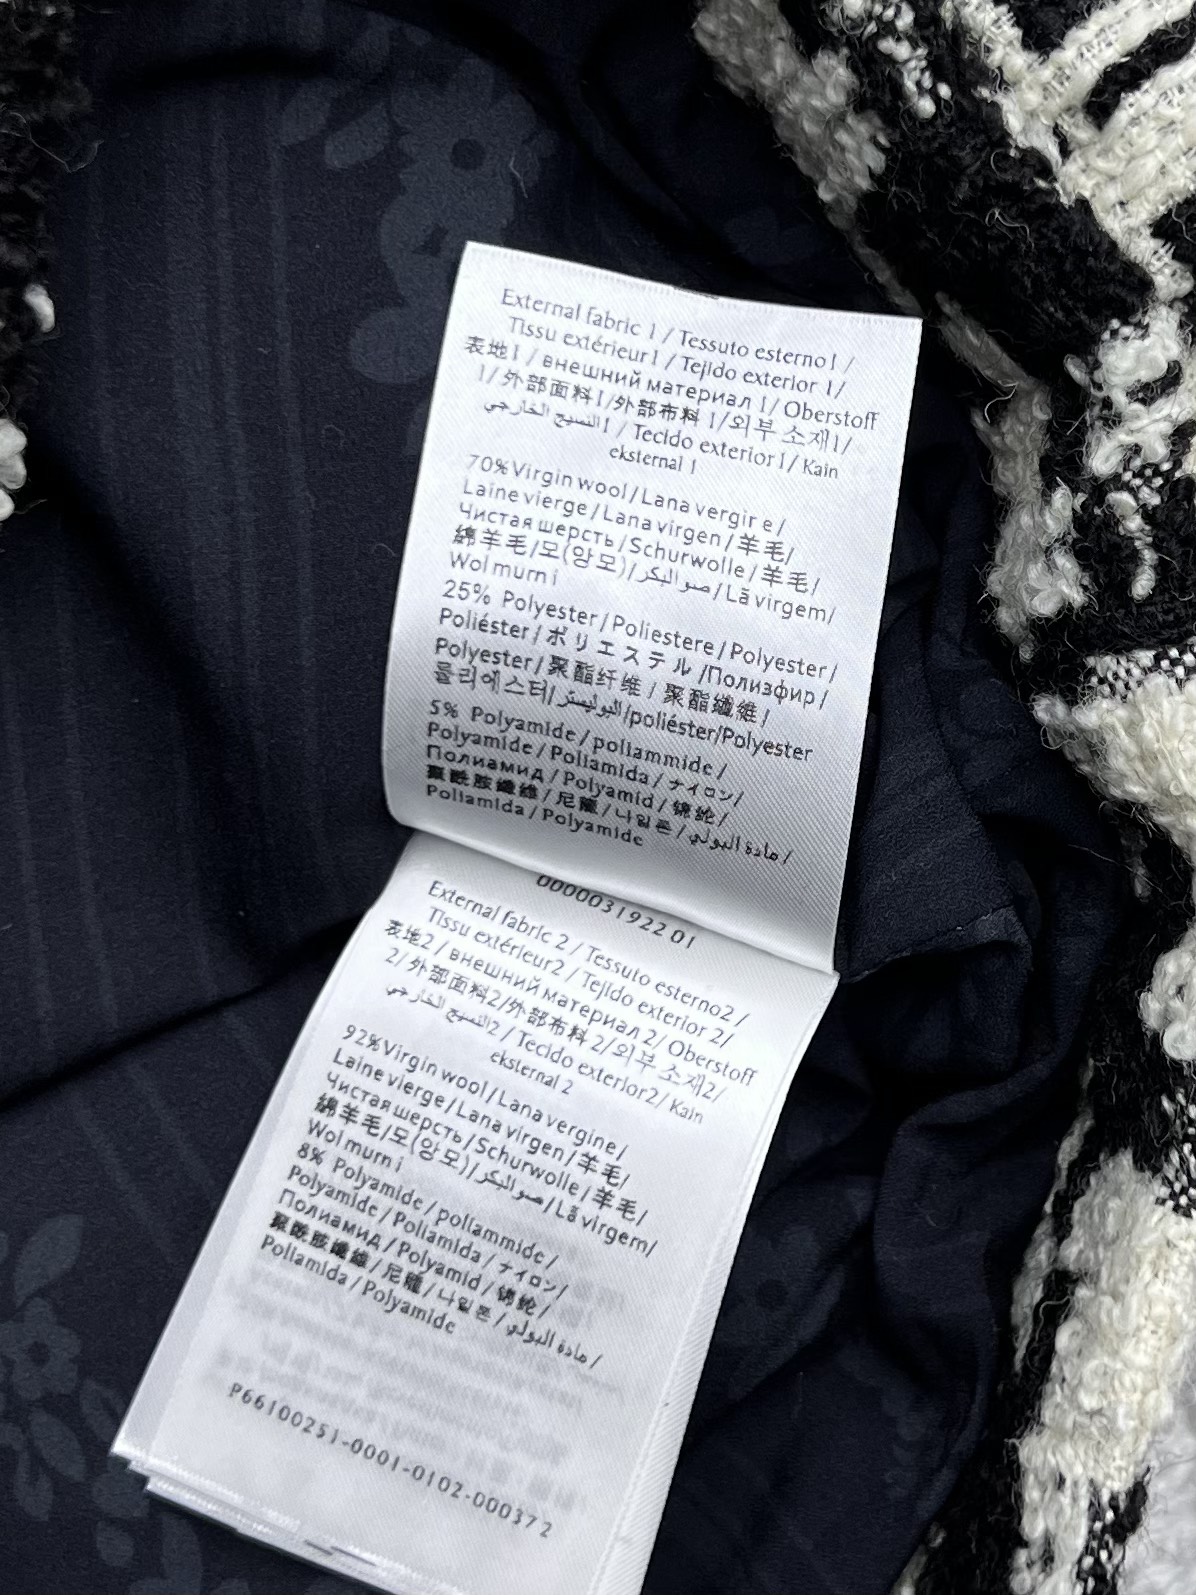 External fabric 1 / Tessuto esterno1 /
Tissu extérieur1 / Tejido exterior 1/
表地1 / внешний материал 1/ Oberstoff
1/外部面料1/外部布料 1/외부 소재1/
النسيج الخارجي1 / Tecido exterior1/ Kain
eksternal 1
70%Virgin wool/Lana vergir e/
Laine vierge/Lana virgen/羊毛/
Чистая шерсть/Schurwolle/羊毛/
綿羊毛/모(앙모)/صو البكر/Lã virgem/
Wol murni
25% Polyester/Poliestere/Polyester/
Poliéster/ポリエステル/Полиэфир/
Polyester/聚酯纤维/聚酯纖維/
폴리에스터/البوليستر/poliéster/Polyester
5% Polyamide/poliammide/
Polyamide/Poliamida/ナイロン/
Полиамид/Polyamid/锦纶/
聚酰胺纖維/尼龍/나일론/مادة البولي/
Poliamida/Polyamide
0000031922 01
External fabric 2 / Tessuto esterno2 /
Tissu extérieur2 / Tejido exterior 2/
表地2 / внешний материал 2/ Oberstoff
2/外部面料2/外部布料 2/외부 소재2/
النسيج الخارجي2 / Tecido exterior2/ Kain
eksternal 2
92%Virgin wool/Lana vergine/
Laine vierge/Lana virgen/羊毛/
Чистая шерсть/Schurwolle/羊毛/
綿羊毛/모(앙모)/صو البكر/Lã virgem/
Wol murni
8% Polyamide/poliammide/
Polyamide/Poliamida/ナイロン/
Полиамид/Polyamid/锦纶/
聚酰胺纖維/尼龍/나일론/مادة البولي/
Poliamida/Polyamide
P66100251-0001-0102-000372